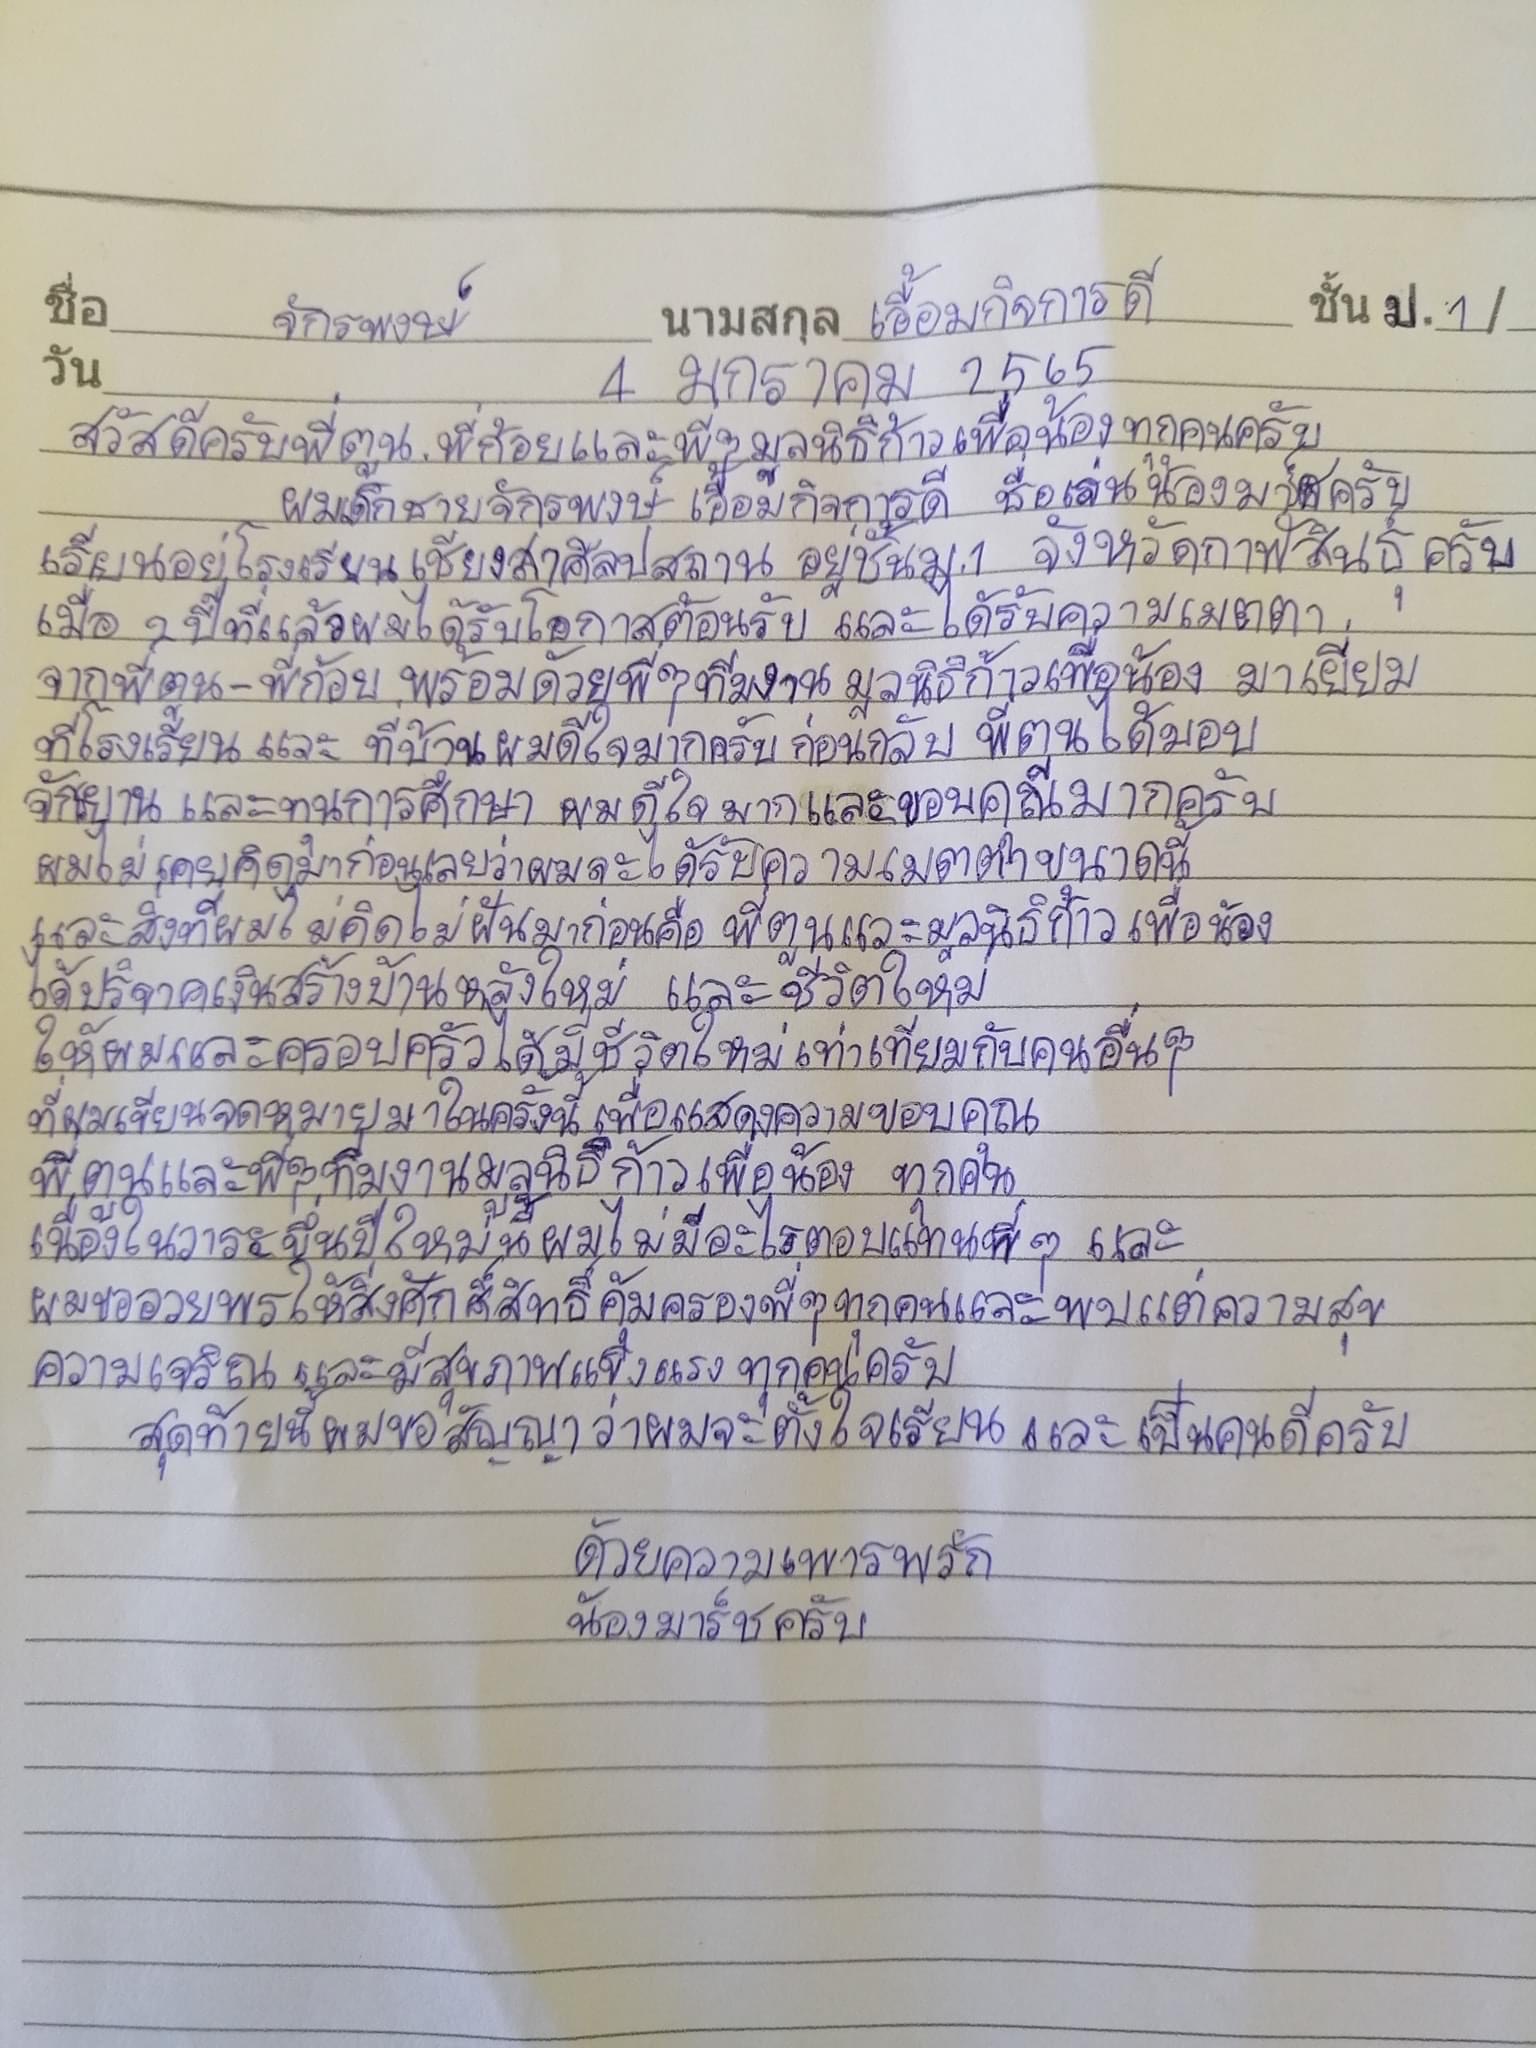 ชื่อ จักรพงษ์ นามสกุล เอื้อมกิจการดี ชั้น ป.1/
วัน 4 มกราคม 2565
สวัสดีครับพี่ตูน.พี่ก้อยและพี่ๆมูลนิธิก้าวเพื่อน้องทุกคนครับ
ผมเด็กชายจักรพงษ์ เอื้อมกิจการดี ชื่อเล่นน้องมาร์ชครับ
เรียนอยู่โรงเรียนเชียงสาศิลปสถาน อยู่ชั้นม.1 จังหวัดกาฬสินธุ์ครับ
เมื่อ 2 ปีที่แล้วผมได้รับโอกาสต้อนรับ และได้รับความเมตตา
จากพี่ตูน-พี่ก้อย พร้อมด้วยพี่ๆทีมงานมูลนิธิก้าวเพื่อน้อง มาเยี่ยม
ที่โรงเรียน และ ที่บ้านผมดีใจมากครับก่อนกลับ พี่ตูนได้มอบ
จักยาน และทุนการศึกษา ผมดีใจมากและขอบคุณมากครับ
ผมไม่เคยคิดมาก่อนเลยว่าผมจะได้รับความเมตตาขนาดนี้
และสิ่งที่ผมไม่คิดไม่ฝันมาก่อนคือ พี่ตูนและมูลนิธิก้าวเพื่อน้อง
ได้บริจาคเงินสร้างบ้านหลังใหม่ และชีวิตใหม่
ให้ผมและครอบครัวได้มีชีวิตใหม่เท่าเทียมกับคนอื่นๆ
ที่ผมเขียนจดหมายมาในครั้งนี้เพื่อแสดงความขอบคุณ
พี่ตูนและพี่ๆทีมงานมูลนิธิก้าวเพื่อน้อง ทุกคน
เนื่องในวาระขึ้นปีใหม่นี้ผมไม่มีอะไรตอบแทนพี่ๆ และ
ผมขออวยพรให้สิ่งศักสิ์สิทธิ์คุ้มครองพี่ๆทุกคนและพบแต่ความสุข
ความเจริญ และมีสุขภาพแข็งแรง ทุกคนครับ
สุดท้ายนี้ผมขอสัญญาว่าผมจะตั้งใจเรียน และเป็นคนดีครับ
ด้วยความเพารพรัก
น้องมาร์ชครับ